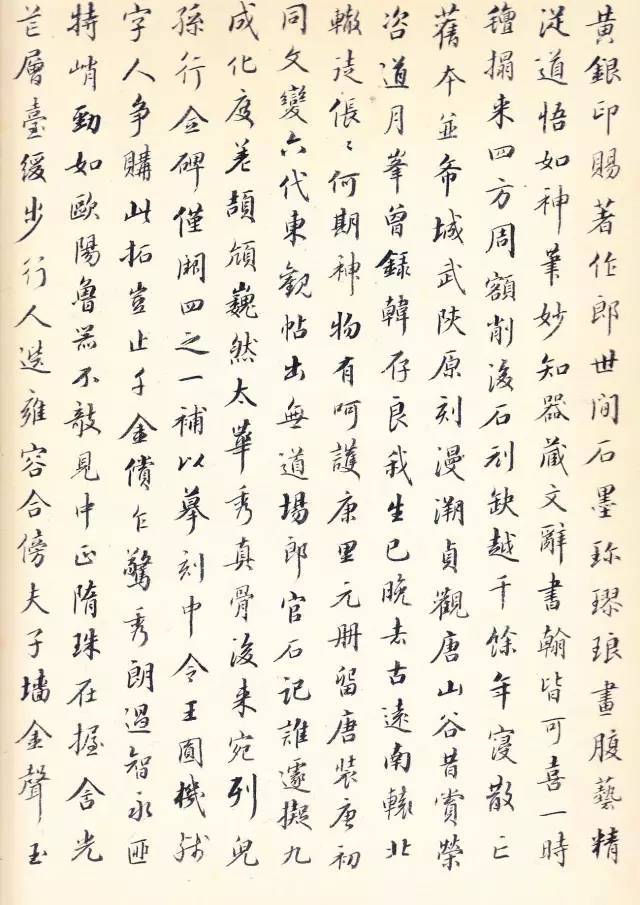 黃銀印賜著作郎世間石墨珎璆琅畫腹藝精
從道悟如神筆妙知器蔵文辭書翰皆可喜一時
氊搨来四方周額削後石刓缺越千餘年寖散亡
舊本並希城武陜原刻漫溯貞觀唐山谷昔賞榮
咨道月峯曾録韓存良我生已晚去古遠南轅北
轍徒倀〻何期神物有呵護康里元册留唐裝唐初
同文變六代東觀帖出無道場郎官石記誰遽擬九
成化度差頡頏巍然太華秀真骨後来宛列兒
孫行合碑僅闕四之一補以摹刻中令王圓機

字人争購此拓豈止千金償乍驚秀朗過智永匪
特峭勁如歐陽魯器不敲見中正隋珠在握含光
芒層臺緩步行人迭雍容合傍夫子墻金聲玉